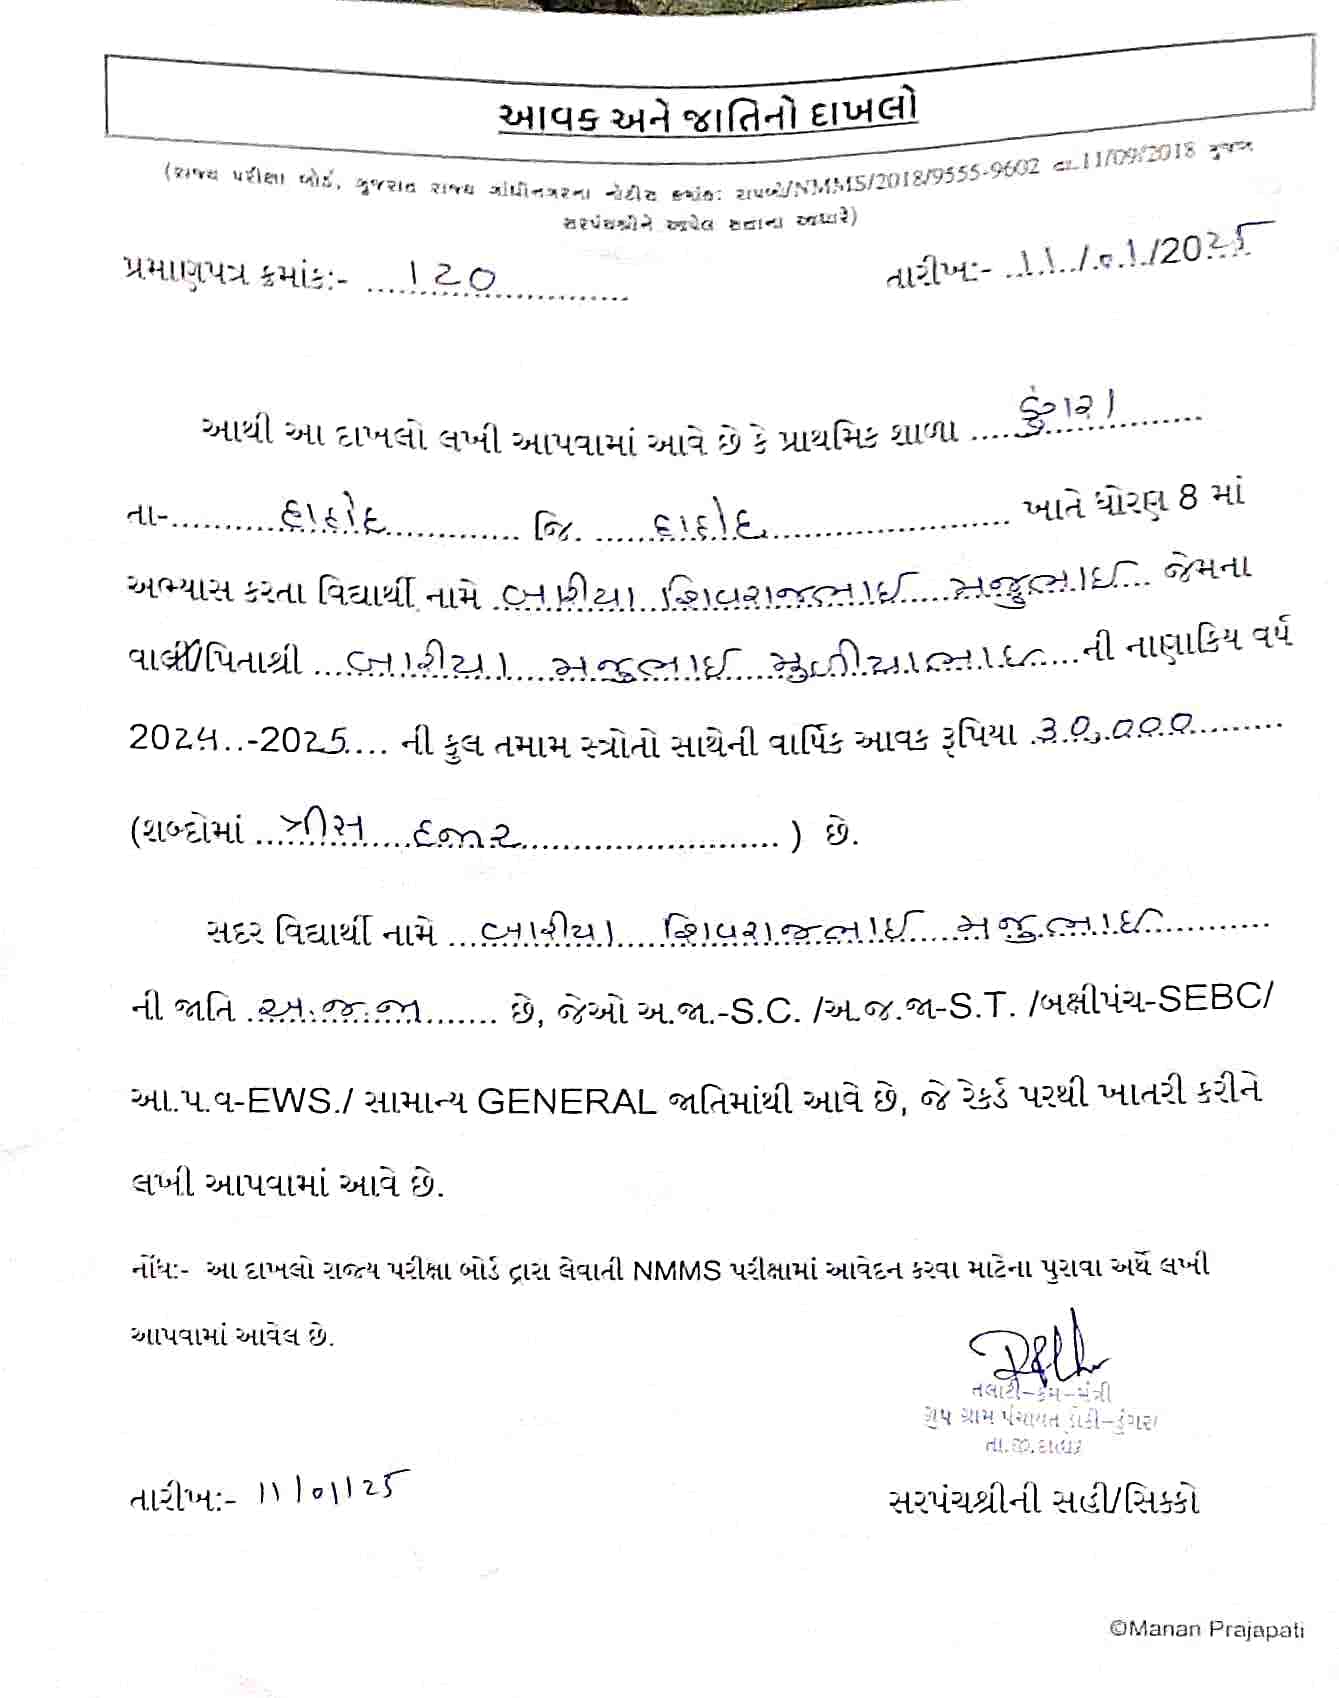 આવક અને જાતિનો દાખલો
(રાજ્ય પરીક્ષા બોર્ડ, ગુજરાત રાજ્ય ગાંધીનગરના નોટીસ ક્રમાંક: રાપબો/NMMS/2018/9555-9602 તા.11/09/2018 મુજબ
સરપંચશ્રીને આપેલ સત્તાના આધારે)
પ્રમાણપત્ર ક્રમાંક:- ....120.................... તારીખ:- ..11../.01./2025
આથી આ દાખલો લખી આપવામાં આવે છે કે પ્રાથમિક શાળા ....ડુંગરા............
તા-...........દાહોદ............. જિ. ......દાહોદ...................... ખાતે ધોરણ 8 માં
અભ્યાસ કરતા વિદ્યાર્થી નામે .બારીયા શિવરાજભાઈ મજુભાઈ... જેમના
વાલી/પિતાશ્રી ...બારીયા મજુભાઈ મુળીયાભાઈ.....ની નાણાકિય વર્ષ
2024..-2025.... ની કુલ તમામ સ્ત્રોતો સાથેની વાર્ષિક આવક રૂપિયા .30,000.........
(શબ્દોમાં ...ત્રીસ હજાર.......................... ) છે.
સદર વિદ્યાર્થી નામે ...બારીયા શિવરાજભાઈ મજુભાઈ...........
ની જાતિ .અ.જ.જા....... છે, જેઓ અ.જા.-S.C. /અ.જ.જા-S.T. /બક્ષીપંચ-SEBC/
આ.પ.વ-EWS./ સામાન્ય GENERAL જાતિમાંથી આવે છે, જે રેકર્ડ પરથી ખાતરી કરીને
લખી આપવામાં આવે છે.
નોંધ:- આ દાખલો રાજ્ય પરીક્ષા બોર્ડ દ્વારા લેવાતી NMMS પરીક્ષામાં આવેદન કરવા માટેના પુરાવા અર્થે લખી
આપવામાં આવેલ છે.
તલાટી-કમ-મંત્રી
ગ્રુપ ગ્રામ પંચાયત ડોકી-ડુંગરા
તા.જી.દાહોદ
તારીખ:- 11/01/25
સરપંચશ્રીની સહી/સિક્કો
©Manan Prajapati